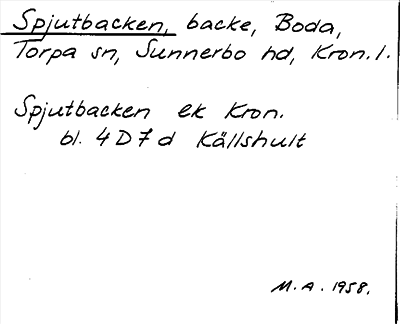 Spjutbacken, backe, Boda,
Torpa sn, Sunnerbo hd, Kron. l.
Spjutbacken ek Kron.
bl. 4 D 7 d Källshult
M. A. 1958.